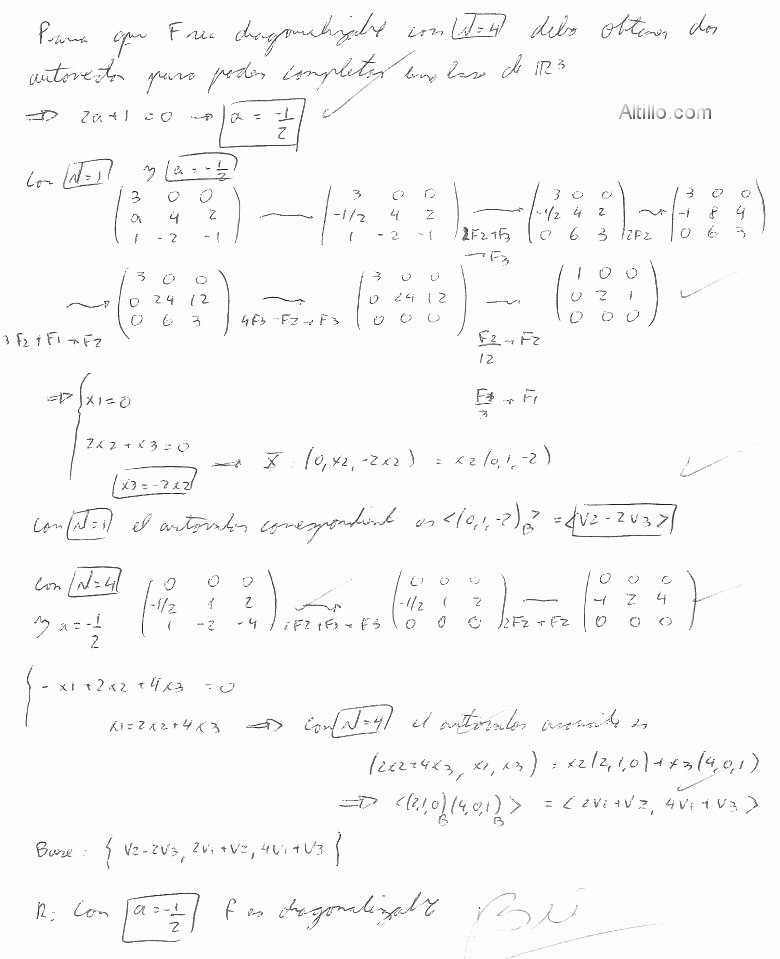 Para que F sea diagonalizable con λ=4 debo obtener dos
autovectores para poder completar una base de ℝ³
⇒ 2a+1=0 → a = -1/2
Altillo.com
Con λ=1 y a=-1/2
(3 0 0; a 4 2; 1 -2 -1) → (3 0 0; -1/2 4 2; 1 -2 -1) → 2F2+F3→F3 (3 0 0; -1/2 4 2; 0 6 3) → 2F2 (3 0 0; -1 8 4; 0 6 3)
→ 3F2+F1→F2 (3 0 0; 0 24 12; 0 6 3) → 4F3-F2→F3 (3 0 0; 0 24 12; 0 0 0) → F2/12→F2 F1/3→F1 (1 0 0; 0 2 1; 0 0 0)
⇒ { x1=0
2x2+x3=0
x3=-2x2 ⇒ X̄: (0, x2, -2x2) = x2(0,1,-2)
Con λ=1 el autovector correspondiente es <(0,1,-2)B> = <V2-2V3>
Con λ=4 y a=-1/2 (0 0 0; -1/2 1 2; 1 -2 -4) → 2F2+F3→F3 (0 0 0; -1/2 1 2; 0 0 0) → 2F2→F2 (0 0 0; -1 2 4; 0 0 0)
{ -x1+2x2+4x3=0
x1=2x2+4x3 ⇒ con λ=4 el autovector asociado es
(2x2+4x3, x2, x3) = x2(2,1,0)+x3(4,0,1)
⇒ <(2,1,0)B (4,0,1)B> = <2V1+V2, 4V1+V3>
Base: {V2-2V3, 2V1+V2, 4V1+V3}
R: Con a=-1/2 F es diagonalizable